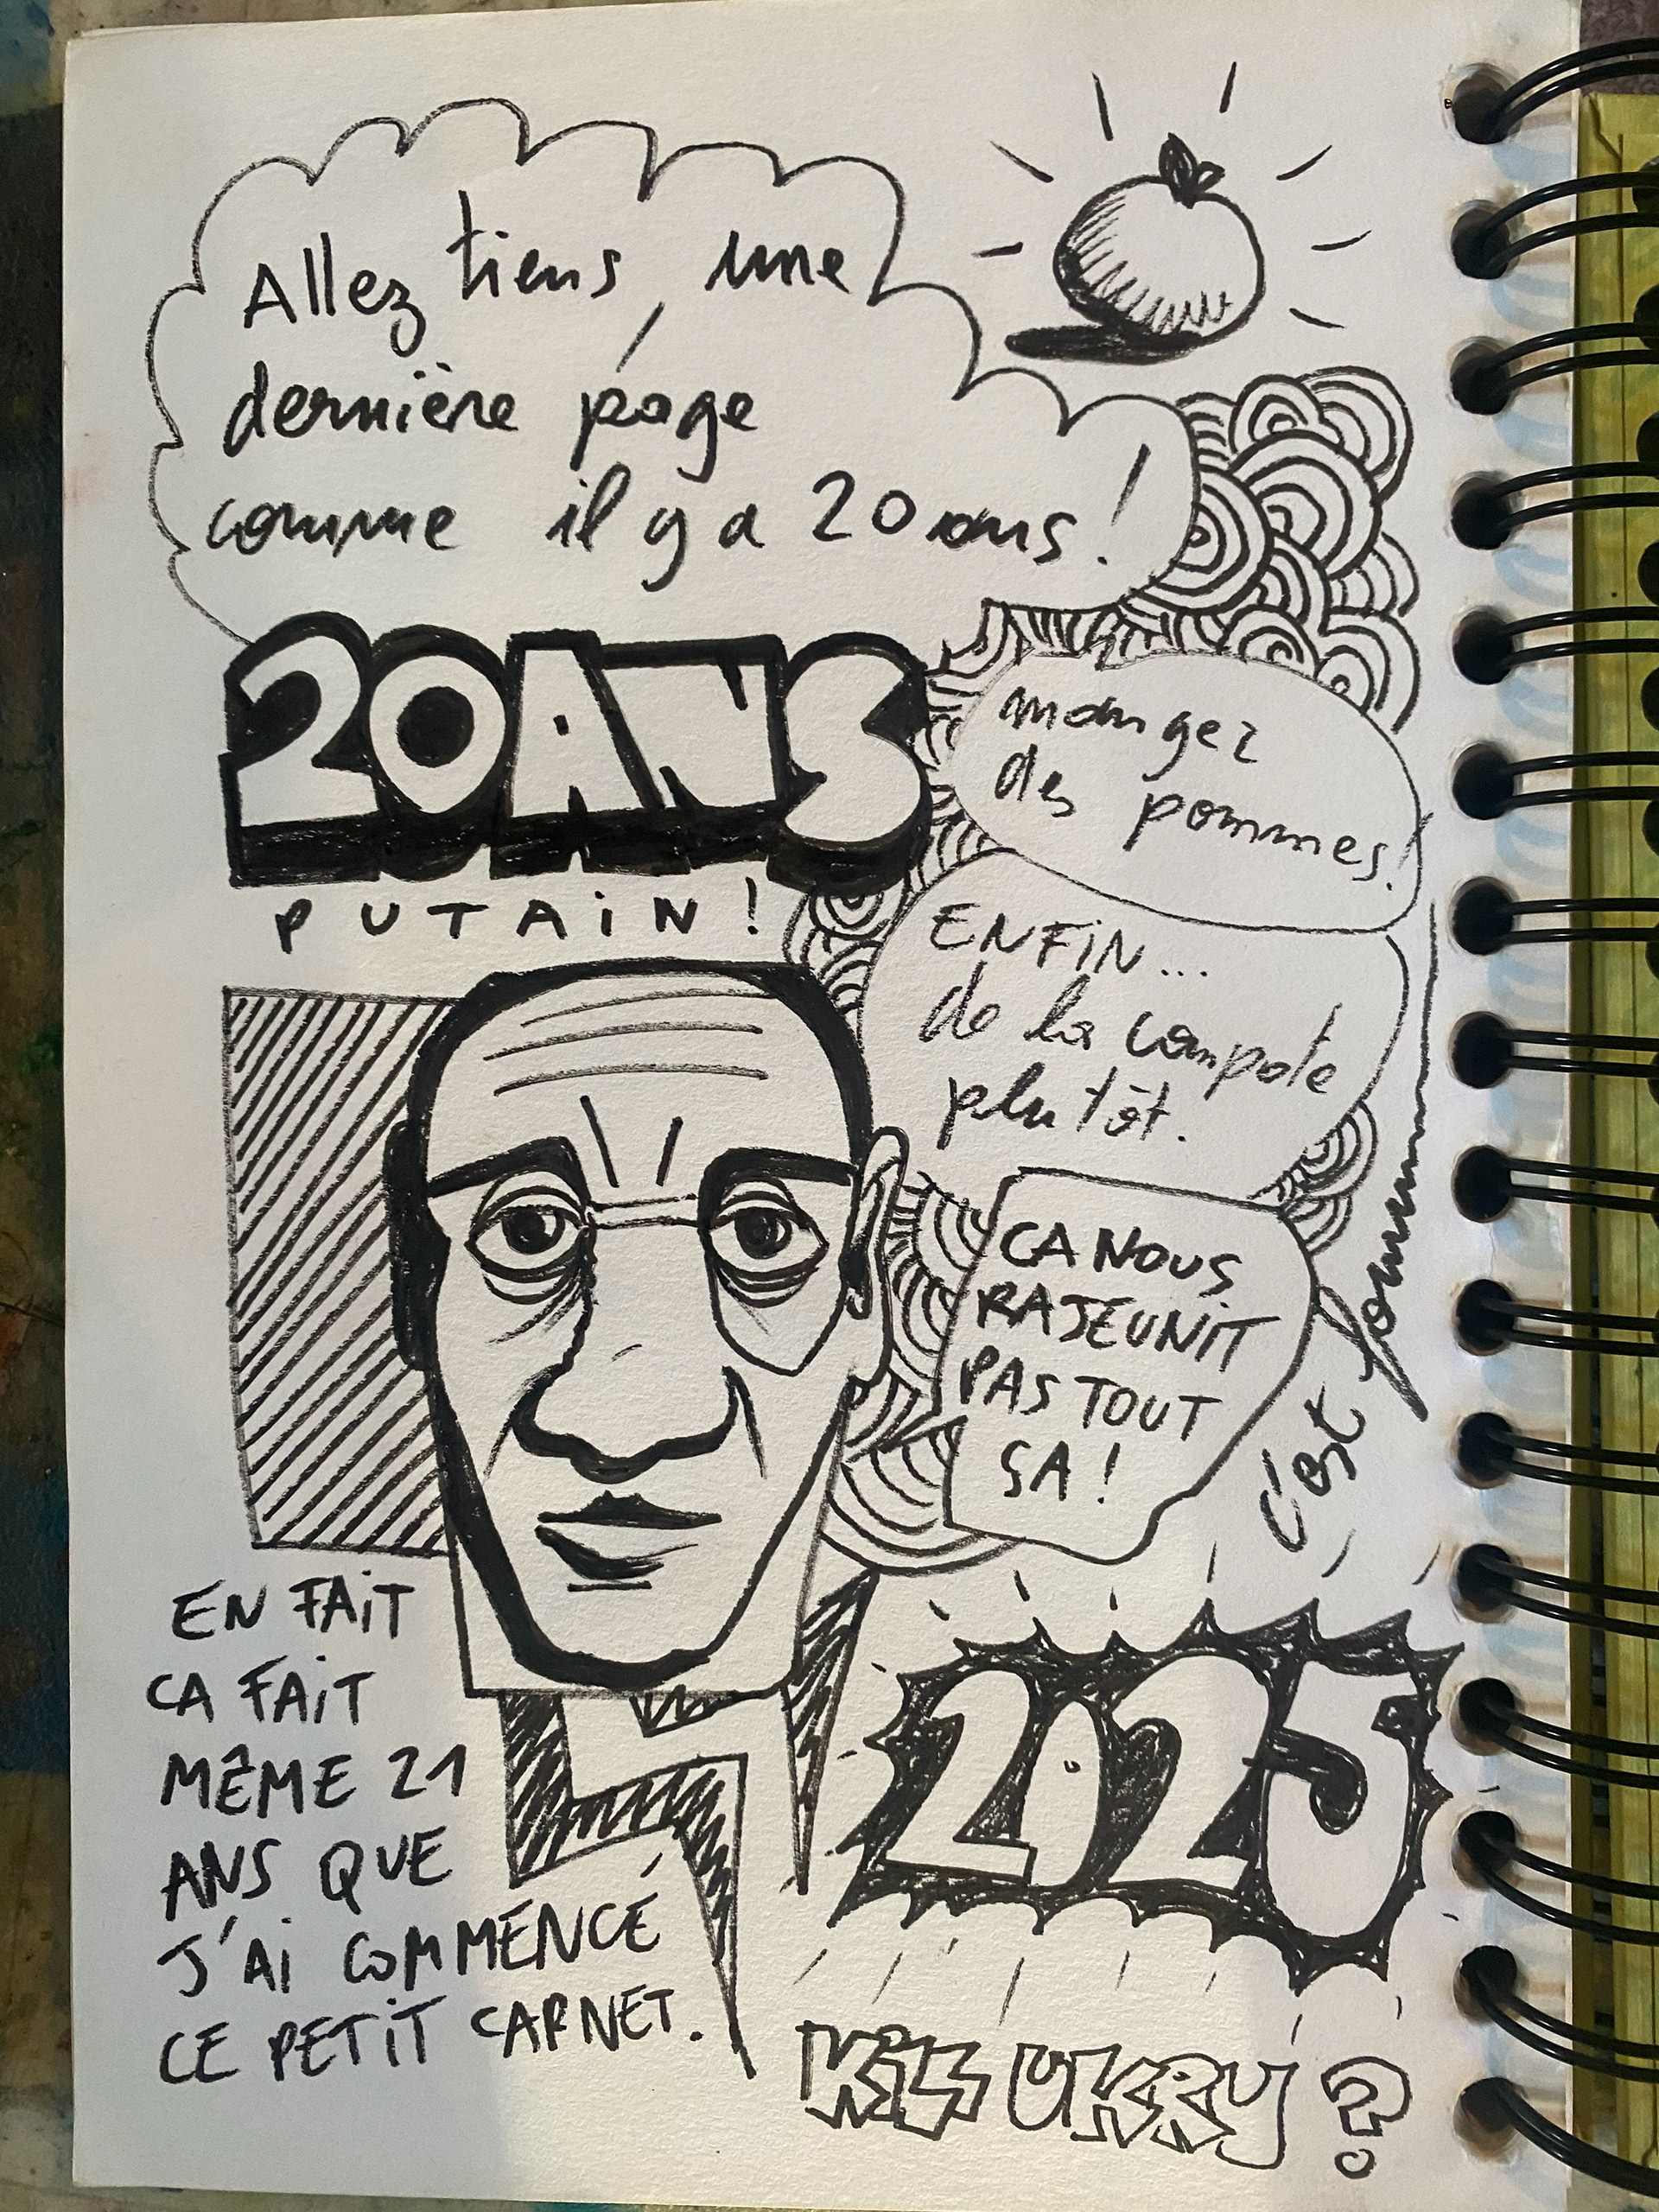 Allez tiens, une
dernière page
comme il y a 20 ans !
20 ANS
PUTAIN !
mangez
des pommes !
ENFIN...
de la compote
plutôt.
CA NOUS
RAJEUNIT
PAS TOUT
SA !
c'est
2025
EN FAIT
CA FAIT
MÊME 21
ANS QUE
J'AI COMMENCÉ
CE PETIT CARNET.
?